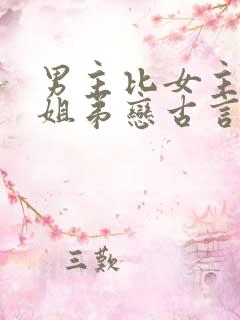 男主比女主
姐弟戀古言
三歎